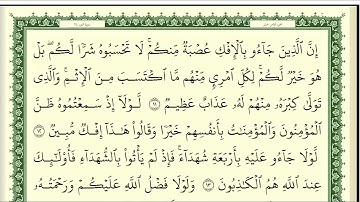 إِنَّ ٱلَّذِينَ جَآءُو بِٱلۡإِفۡكِ عُصۡبَةٞ مِّنكُمۡۚ لَا تَحۡسَبُوهُ شَرّٗا لَّكُمۖ بَلۡ
هُوَ خَيۡرٞ لَّكُمۡۚ لِكُلِّ ٱمۡرِيٕٖ مِّنۡهُم مَّا ٱكۡتَسَبَ مِنَ ٱلۡإِثۡمِۚ وَٱلَّذِي
تَوَلَّىٰ كِبۡرَهُۥ مِنۡهُمۡ لَهُۥ عَذَابٌ عَظِيمٞ ١١ لَّوۡلَآ إِذۡ سَمِعۡتُمُوهُ ظَنَّ
ٱلۡمُؤۡمِنُونَ وَٱلۡمُؤۡمِنَٰتُ بِأَنفُسِهِمۡ خَيۡرٗا وَقَالُواْ هَٰذَآ إِفۡكٞ مُّبِينٞ ١٢
لَّوۡلَا جَآءُو عَلَيۡهِ بِأَرۡبَعَةِ شُهَدَآءَۚ فَإِذۡ لَمۡ يَأۡتُواْ بِٱلشُّهَدَآءِ فَأُوْلَٰٓئِكَ
عِندَ ٱللَّهِ هُمُ ٱلۡكَٰذِبُونَ ١٣ وَلَوۡلَا فَضۡلُ ٱللَّهِ عَلَيۡكُمۡ وَرَحۡمَتُهُۥ